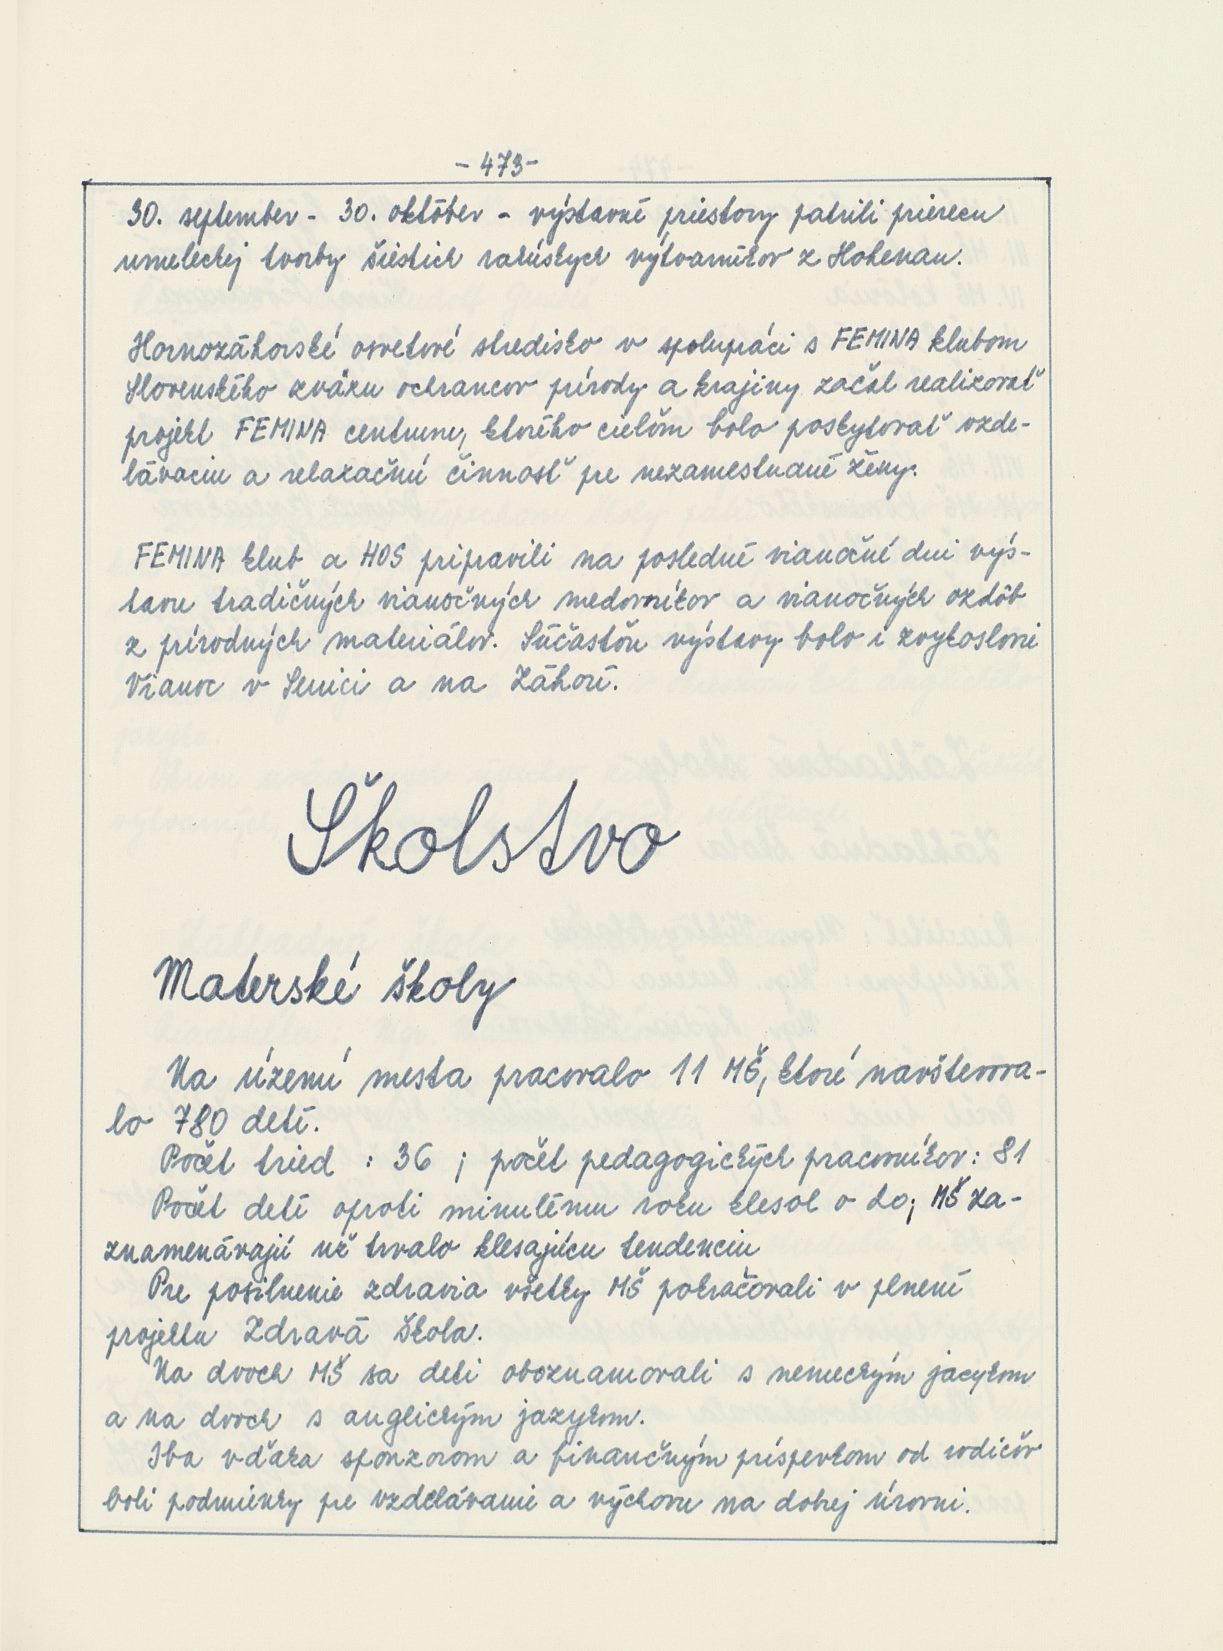 - 473 -
30. september - 30. október - výstavné priestory patrili prierezu
umeleckej tvorby šiestich rakúskych výtvarníkov z Hohenau.
Hornozáhorské osvetové stredisko v spolupráci s FEMINA klubom
Slovenského zväzu ochrancov prírody a krajiny začal realizovať
projekt FEMINA centrum, ktorého cieľom bolo poskytovať vzde-
lávaciu a relaxačnú činnosť pre nezamestnané ženy.
FEMINA klub a HOS pripravili na posledné vianočné dni výs-
tavu tradičných vianočných medovníkov a vianočných ozdôb
z prírodných materiálov. Súčasťou výstavy bolo i zvykoslovie
Vianoc v Senici a na Záhorí.
Školstvo
Materské školy
Na území mesta pracovalo 11 MŠ, ktoré navštevova-
lo 780 detí.
Počet tried : 36 ; počet pedagogických pracovníkov: 81
Počet detí oproti minulému roku klesol o 20; MŠ za-
znamenávajú už trvalo klesajúcu tendenciu
Pre posilnenie zdravia všetky MŠ pokračovali v plnení
projektu Zdravá škola.
Na dvoch MŠ sa deti oboznamovali s nemeckým jazykom
a na dvoch s anglickým jazykom.
Iba vďaka sponzorom a finančným príspevkom od rodičov
boli podmienky pre vzdelávanie a výchovu na dobrej úrovni.